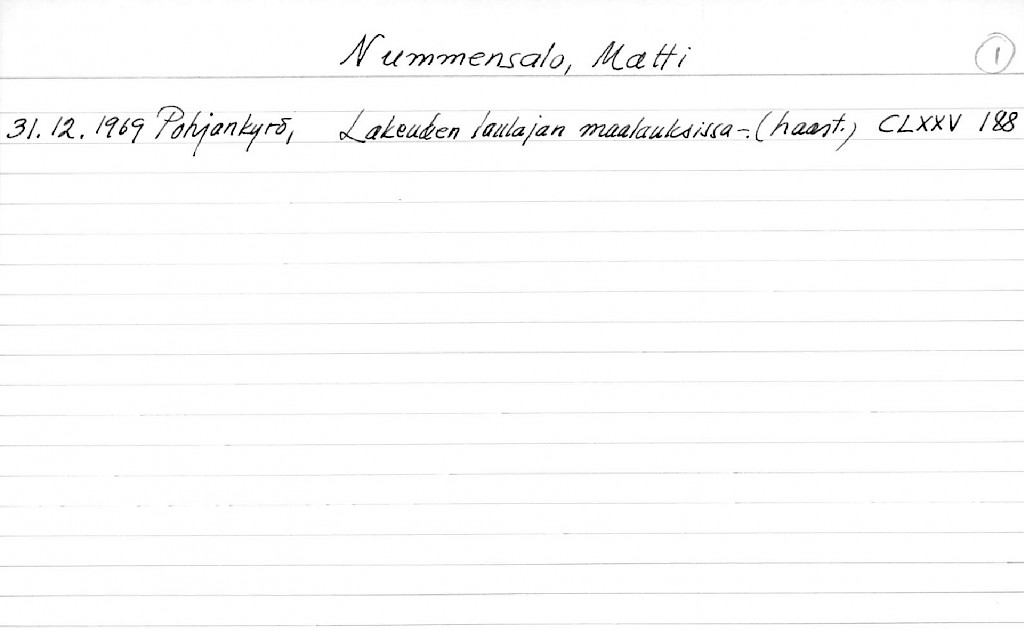 Nummensalo, Matti 1
31.12.1969 Pohjankyrö, Lakeuden laulajan maalauksissa-. (haast.) CLXXV 188